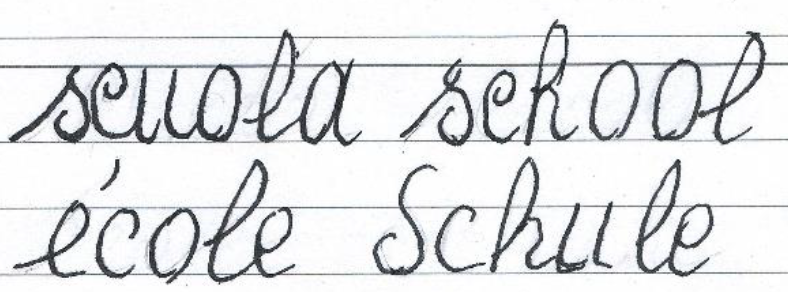 scuola school
école Schule